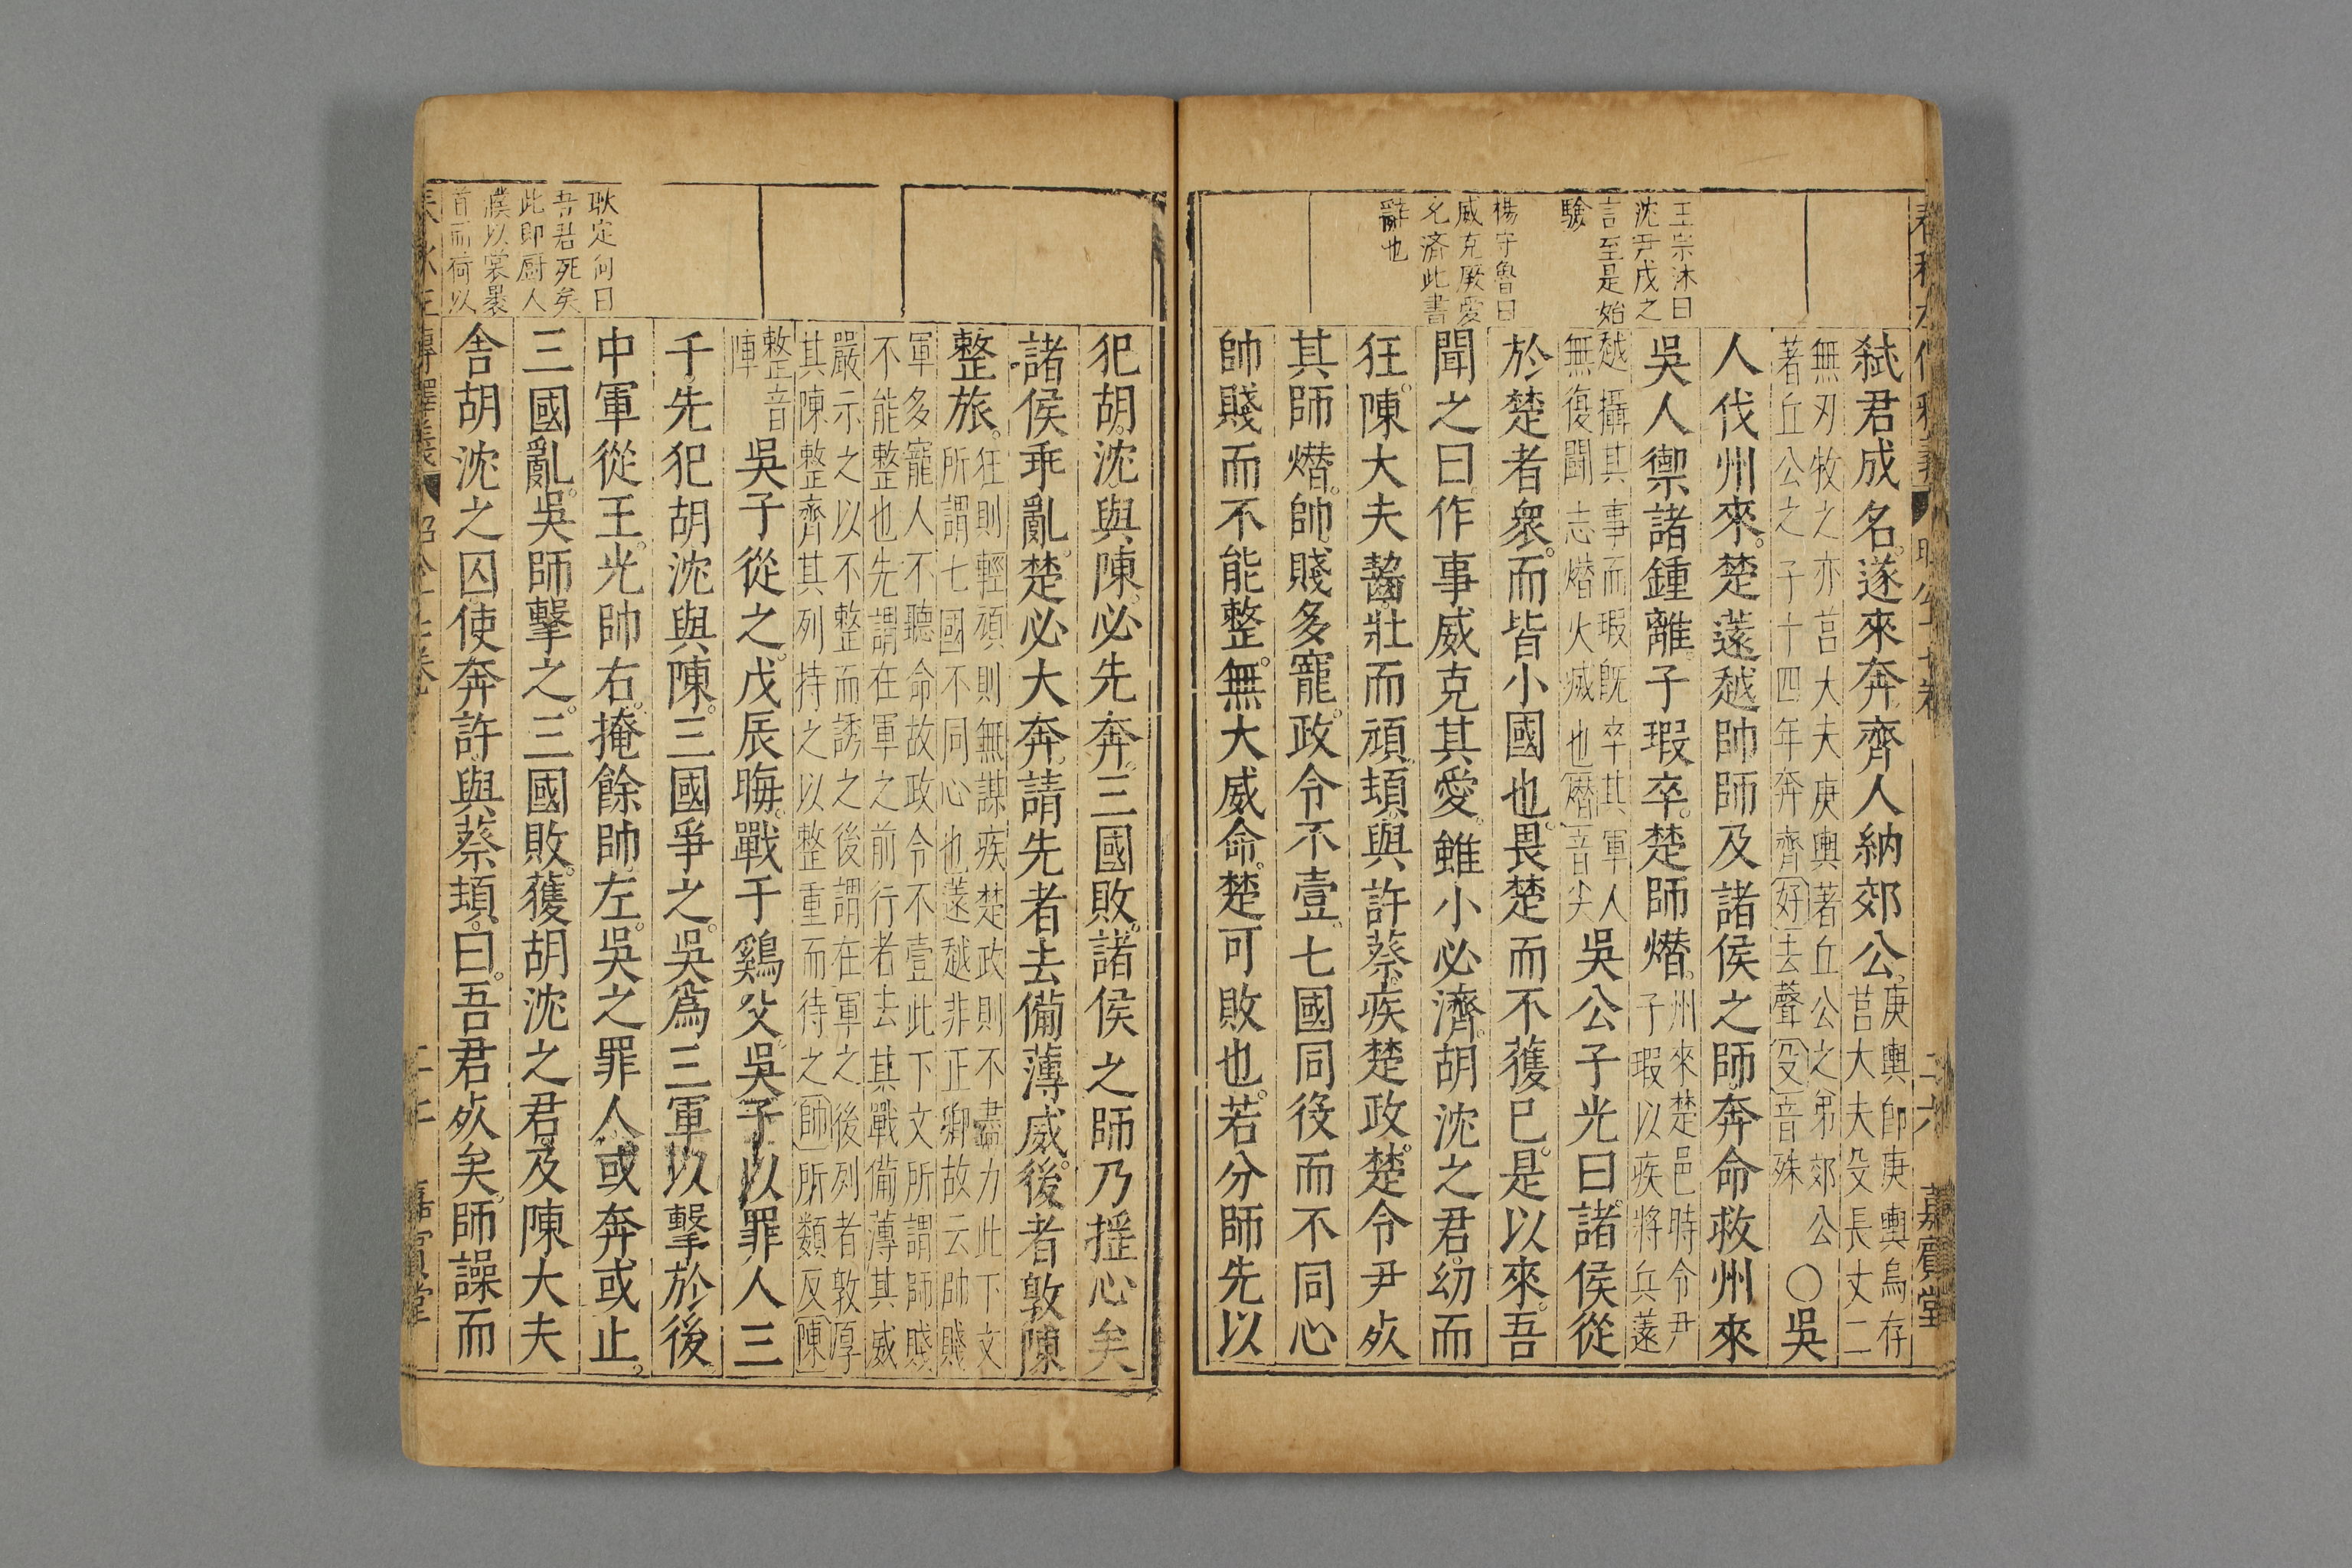 王宗沐曰
沈尹戌之
言至是始
驗
楊守魯曰
威克厥愛
允濟此書
辭也
弑君成名。遂來奔齊人納郊公。庚輿即庚輿烏存
莒大夫殳長丈二
無刃牧之亦莒大夫庚輿著丘公之弟郊公
著丘公之子十四年奔齊好去聲殳音殊
〇吳
人伐州來。楚薳越帥師及諸侯之師。奔命救州來
吳人禦諸鍾離。子瑕卒。楚師熸。州來楚邑時令尹
子瑕以疾將兵薳
越攝其事而瑕旣卒其軍人
無復鬬志熸火烕也熸音尖
吳公子光曰。諸侯從
於楚者衆。而皆小國也。畏楚而不獲已。是以來。吾
聞之曰。作事威克其愛。雖小必濟。胡沈之君。幼而
狂。陳大夫齧。壯而頑。頓與許蔡。疾楚政。楚令尹㱠
其師熸。帥賤多寵。政令不壹。七國同役而不同心
帥賤而不能整。無大威命。楚可敗也。若分師先以
嘉賓堂
犯胡沈與陳。必先奔。三國敗。諸侯之師乃搖心矣
諸侯乖亂。楚必大奔。請先者去備薄威。後者敦陳
整旅。狂則輕頑則無謀疾楚政則不盡力此下文
所謂七國不同心也薳越非正卿故云帥賤
軍多寵人不聽命故政令不壹此下文所謂師賤
不能整也先謂在軍之前行者去其戰備薄其威
嚴示之以不整而誘之後謂在軍之後列者敦厚
其陳整齊其列持之以整重而待之帥所類反陳
整音
陣
吳子從之。戊辰晦。戰于鷄父。吳子以罪人三
千先犯胡沈與陳。三國爭之。吳爲三軍以擊於後
中軍從王。光帥右。掩餘帥左。吳之罪人或奔或止。
三國亂。吳師擊之。三國敗。獲胡沈之君及陳大夫
舎胡沈之囚使奔許與蔡頓。曰。吾君㱠矣。師譟而
耿定向曰
吾君死矣
此即厨人
濮以裳裹
首而荷以